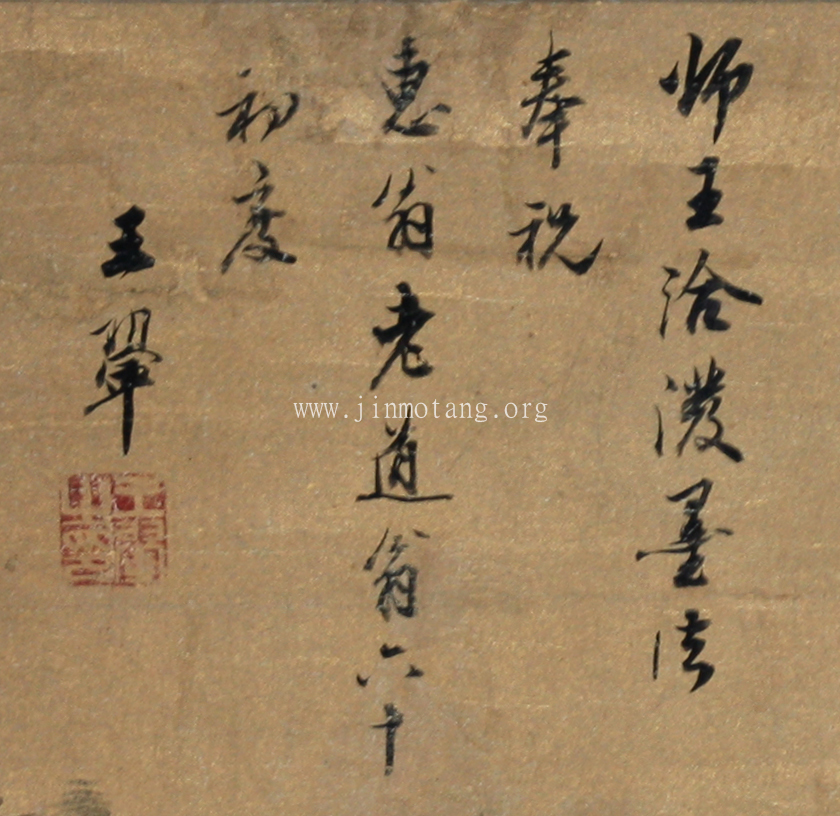 师王洽潑墨法
奉祝
惠翁老道翁六十
初度
王翬
www.jinmotang.org